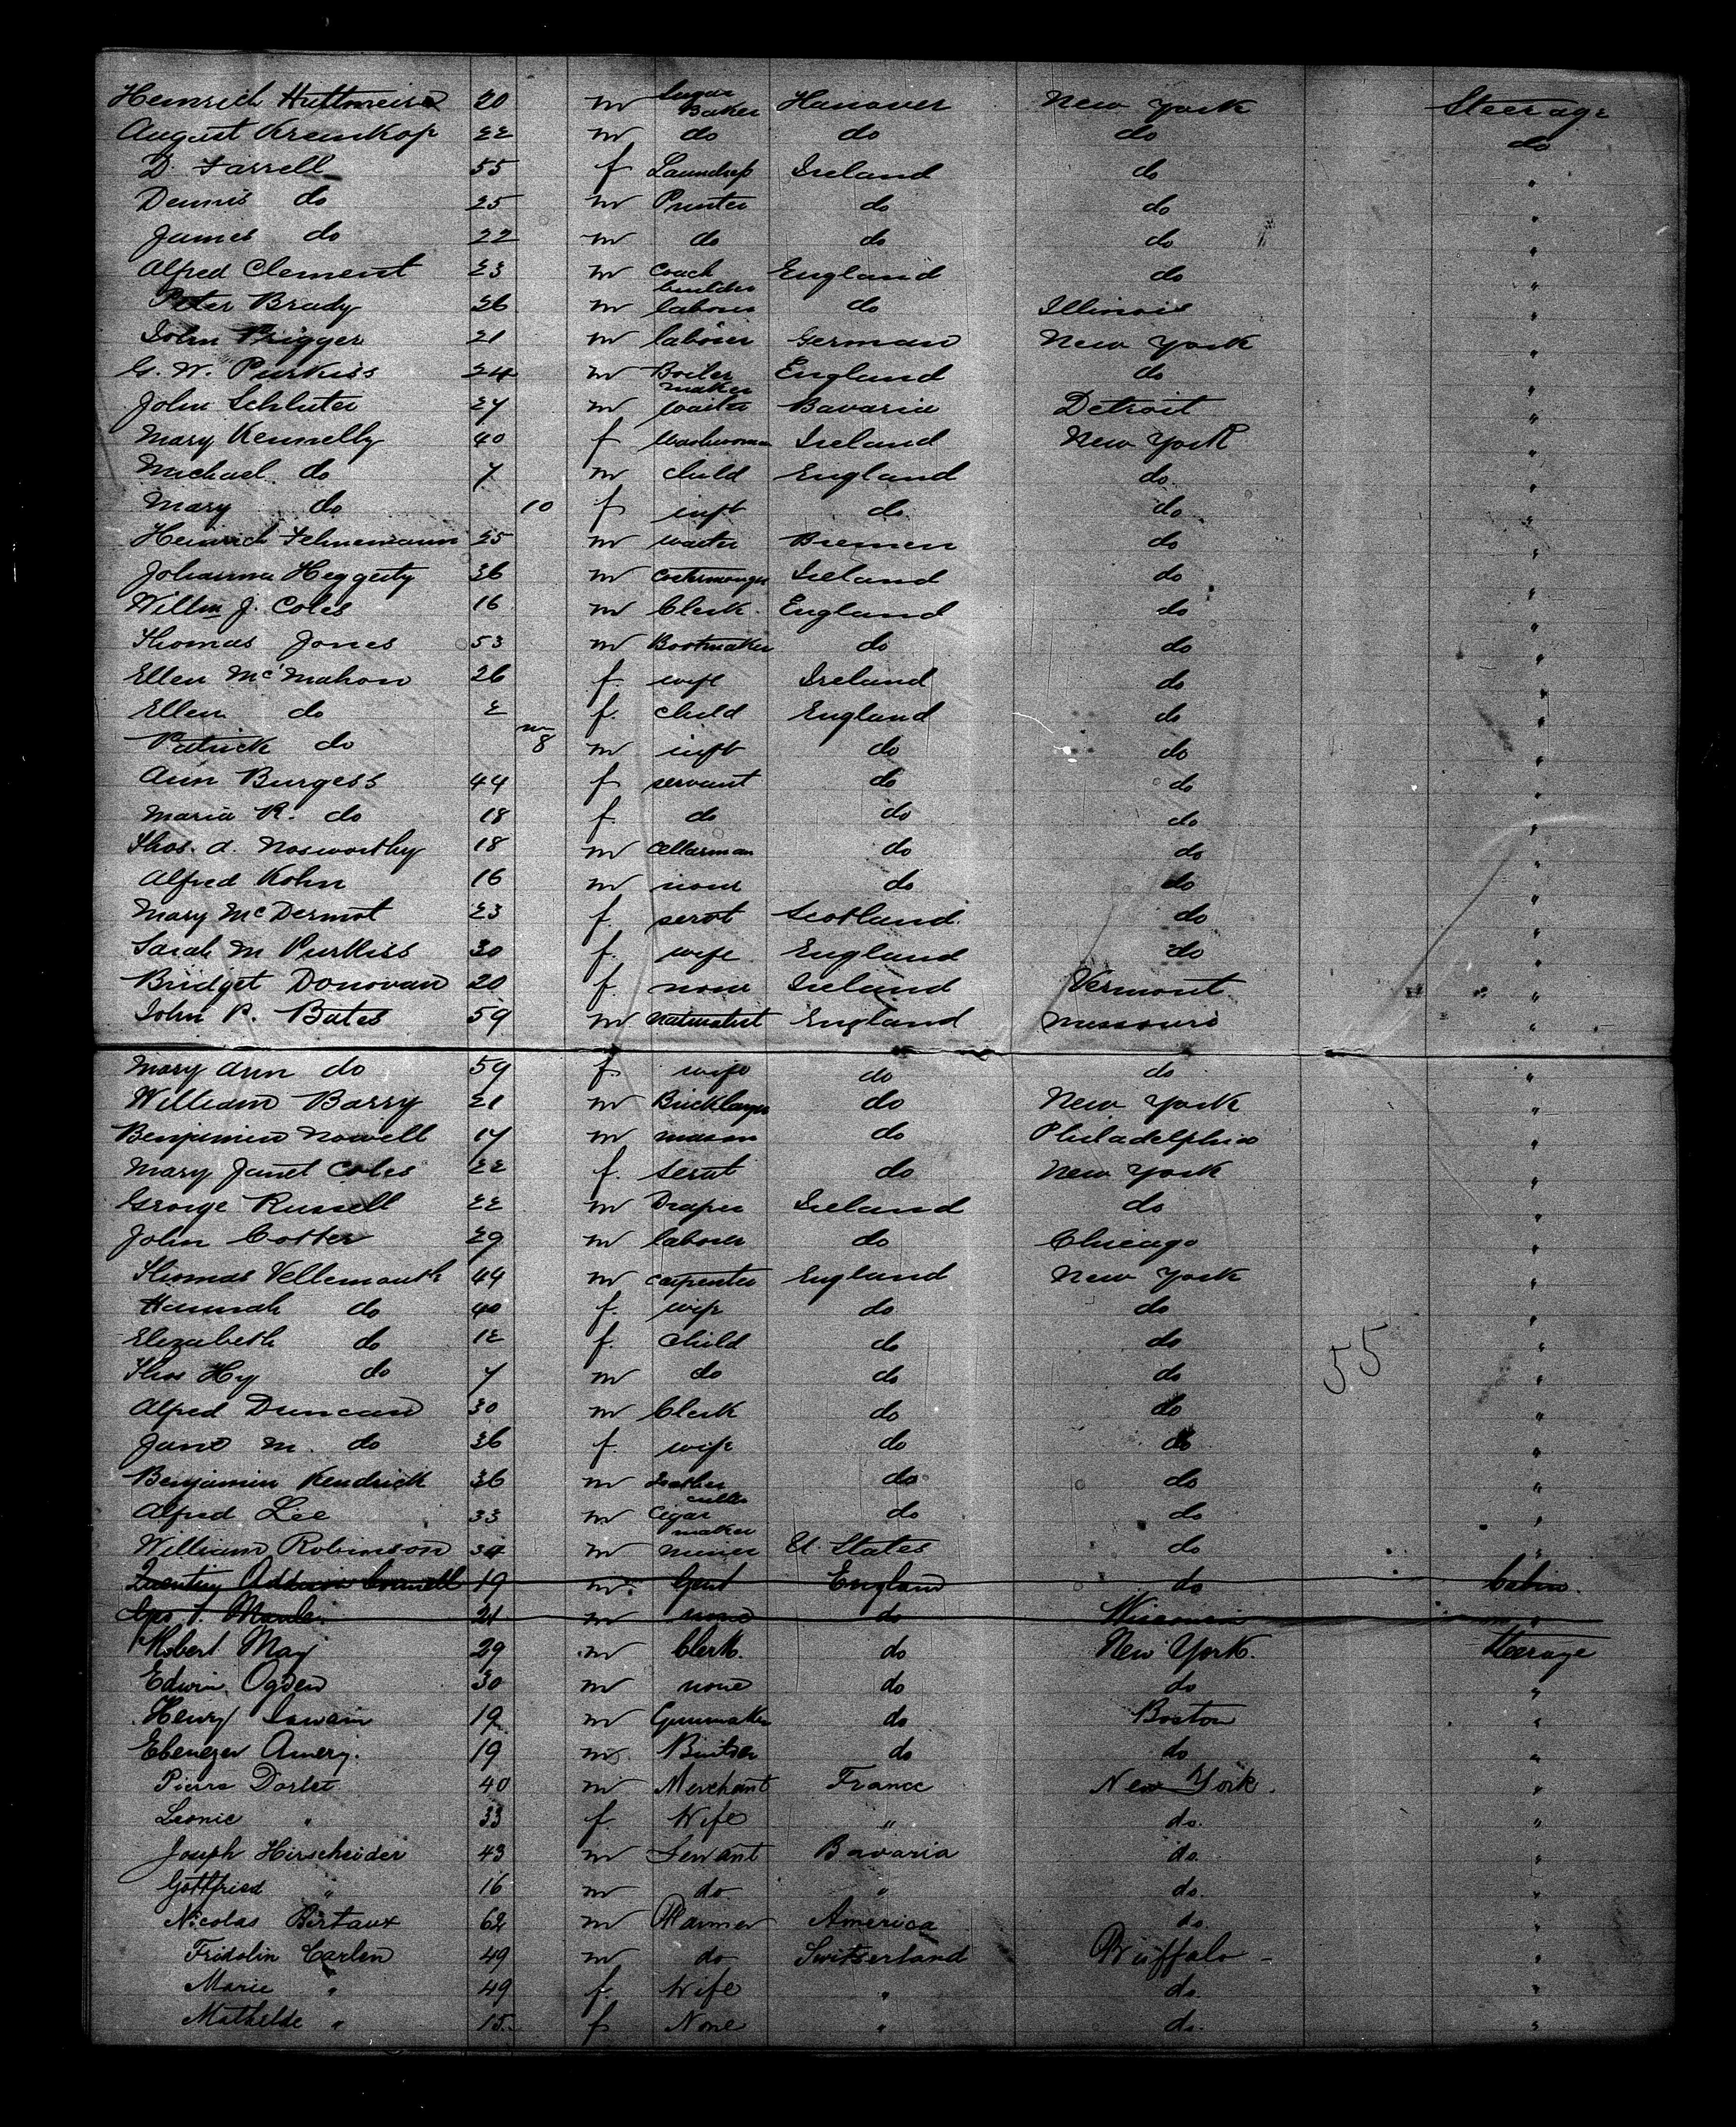 Heinrich 20 m Sugar Baker Hanover New York Steerage
August Krenkop 22 m do do do do
D. Farrell 55 f Laundress Ireland do "
Dennis do 25 m Printer do do "
James do 22 m do do do "
Alfred Clement 23 m Coach builder England do "
Peter Brady 26 m laborer do Illinois "
John Prigger 21 m laborer German New York "
G. W. Purkiss 24 m Boiler maker England do "
John Schluter 27 m waiter Bavaria Detroit "
Mary Kennelly 40 f washwoman Ireland New York "
Michael do 7 m child England do "
Mary do 10 f inft do do "
Heinrich Fehnemann 25 m waiter Bremen do "
Johanna Heggerty 36 m Costermonger Ireland do "
Willm J. Coles 16 m Clerk England do "
Thomas Jones 53 m Bootmaker do do "
Ellen McMahon 26 f. wife Ireland do "
Ellen do 2 f. child England do "
Patrick do m 8 m inft do do "
Ann Burgess 44 f servant do do "
Maria R. do 18 f. do do do "
Thos. A. Nosworthy 18 m Cellarman do do "
Alfred Kohn 16 m none do do "
Mary McDermot 23 f. servt Scotland do "
Sarah M Purkiss 30 f. wife England do "
Bridget Donovan 20 f. none Ireland Vermont "
John P. Bates 59 m Naturalist England Missouri "
Mary Ann do 59 f. wife do do "
William Barry 21 m Bricklayer do New York "
Benjamin Nowell 17 m mason do Philadelphia "
Mary Janet Coles 22 f. servt do New York "
George Russell 22 m Draper Ireland do "
John Cotter 29 m laborer do Chicago "
Thomas Vellemouth 44 m carpenter England New York "
Hannah do 40 f. wife do do "
Elizabeth do 12 f. child do do "
Thos Hy do 7 m do do do 55 "
Alfred Duncan 30 m Clerk do do "
Jane M. do 36 f. wife do do "
Benjamin Kendrick 36 m Leather cutter do do "
Alfred Lee 33 m Cigar maker do do "
William Robinson 34 m miner U States do "
19 m. Gent England do Cabin.
Geo. T. 21 m none do Wisconsin "
Robert May 29 m Clerk. do New York. Steerage
Edwin Ogden 30 m none do do "
Henry Swain 19 m Gunmaker do Boston "
Ebenezer Amery. 19 m. do do "
Pierre Dorlet 40 m Merchant France New York. "
Leonie " 33 f. Wife " do. "
Joseph Hirscheider 43 m Servant Bavaria do. "
Gottfried " 16 m do " do. "
Nicolas Bertaux 62 m Farmer America do. "
Fridolin Carlen 49 m do Switserland Buffalo "
Marie " 49 f. Wife " do. "
Mathilde " 15. f None " do. "